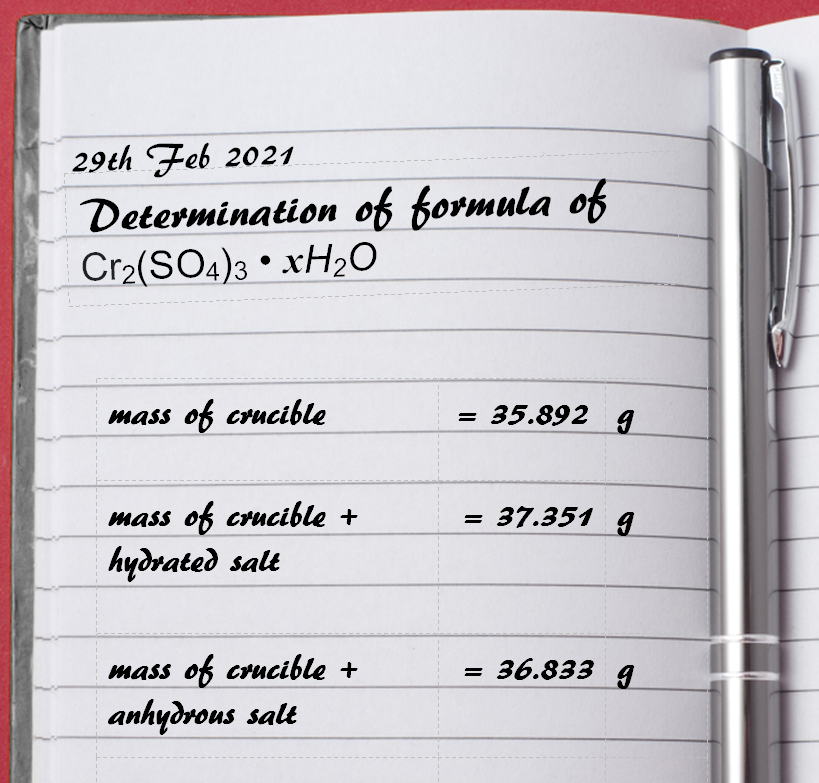 29th Feb 2021
Determination of formula of
Cr₂(SO₄)₃ • xH₂O
mass of crucible = 35.892 g
mass of crucible + = 37.351 g
hydrated salt
mass of crucible + = 36.833 g
anhydrous salt